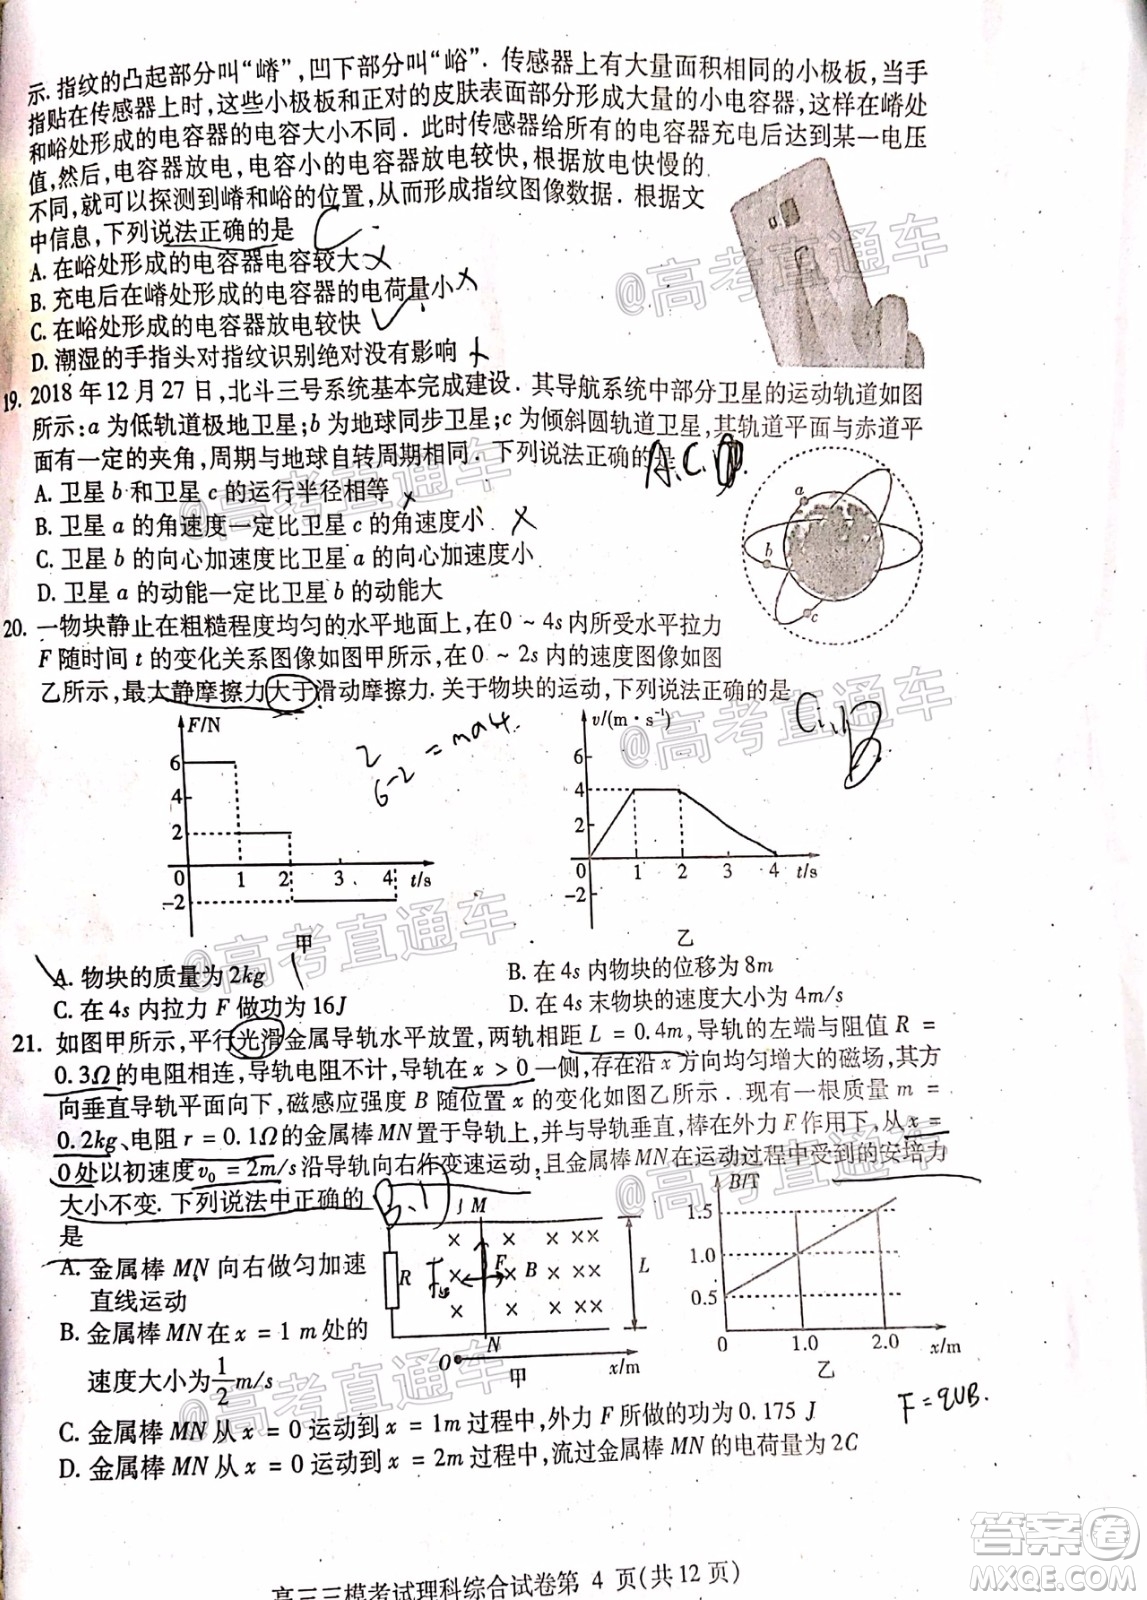 示.指纹的凸起部分叫“嵴”,凹下部分叫“峪”.传感器上有大量面积相同的小极板,当手
指贴在传感器上时,这些小极板和正对的皮肤表面部分形成大量的小电容器,这样在嵴处
和峪处形成的电容器的电容大小不同.此时传感器给所有的电容器充电后达到某一电压
值,然后,电容器放电,电容小的电容器放电较快,根据放电快慢的
不同,就可以探测到嵴和峪的位置,从而形成指纹图像数据.根据文
中信息,下列说法正确的是 C
A.在峪处形成的电容器电容较大 ×
B.充电后在嵴处形成的电容器的电荷量小 ×
C.在峪处形成的电容器放电较快 ✓
D.潮湿的手指头对指纹识别绝对没有影响 ×
19. 2018年12月27日,北斗三号系统基本完成建设.其导航系统中部分卫星的运动轨道如图
所示:a为低轨道极地卫星;b为地球同步卫星;c为倾斜圆轨道卫星,其轨道平面与赤道平
面有一定的夹角,周期与地球自转周期相同.下列说法正确的是 A.C.
A.卫星b和卫星c的运行半径相等 ×
B.卫星a的角速度一定比卫星c的角速度小 ×
C.卫星b的向心加速度比卫星a的向心加速度小
D.卫星a的动能一定比卫星b的动能大
a
b
c
20. 一物块静止在粗糙程度均匀的水平地面上,在0~4s内所受水平拉力
F随时间t的变化关系图像如图甲所示,在0~2s内的速度图像如图
乙所示,最大静摩擦力大于滑动摩擦力.关于物块的运动,下列说法正确的是
F/N
6
4
2
0 1 2 3 4 t/s
-2
甲
2
6-2 = ma4.
v/(m·s⁻¹)
6
4
2
0 1 2 3 4 t/s
-2
乙
B
A.物块的质量为2kg
B.在4s内物块的位移为8m
C.在4s内拉力F做功为16J
D.在4s末物块的速度大小为4m/s
21. 如图甲所示,平行光滑金属导轨水平放置,两轨相距L=0.4m,导轨的左端与阻值R=
0.3Ω的电阻相连,导轨电阻不计,导轨在x>0一侧,存在沿x方向均匀增大的磁场,其方
向垂直导轨平面向下,磁感应强度B随位置x的变化如图乙所示.现有一根质量m=
0.2kg、电阻r=0.1Ω的金属棒MN置于导轨上,并与导轨垂直,棒在外力F作用下,从x=
0处以初速度v₀=2m/s沿导轨向右作变速运动,且金属棒MN在运动过程中受到的安培力
大小不变.下列说法中正确的
是
A.金属棒MN向右做匀加速
直线运动
B.金属棒MN在x=1m处的
速度大小为1/2 m/s
M
R
F
B
L
N
O
x/m
甲
B/T
1.5
1.0
0.5
0 1.0 2.0 x/m
乙
C.金属棒MN从x=0运动到x=1m过程中,外力F所做的功为0.175J
D.金属棒MN从x=0运动到x=2m过程中,流过金属棒MN的电荷量为2C
F=qUB.
高三三模考试理科综合试卷第 4 页(共12页)
@高考直通车
@高考直通车
@高考直通车
@高考直通车
@高考直通车
@高考直通车
@高考直通车
答案圈
MXQE.COM